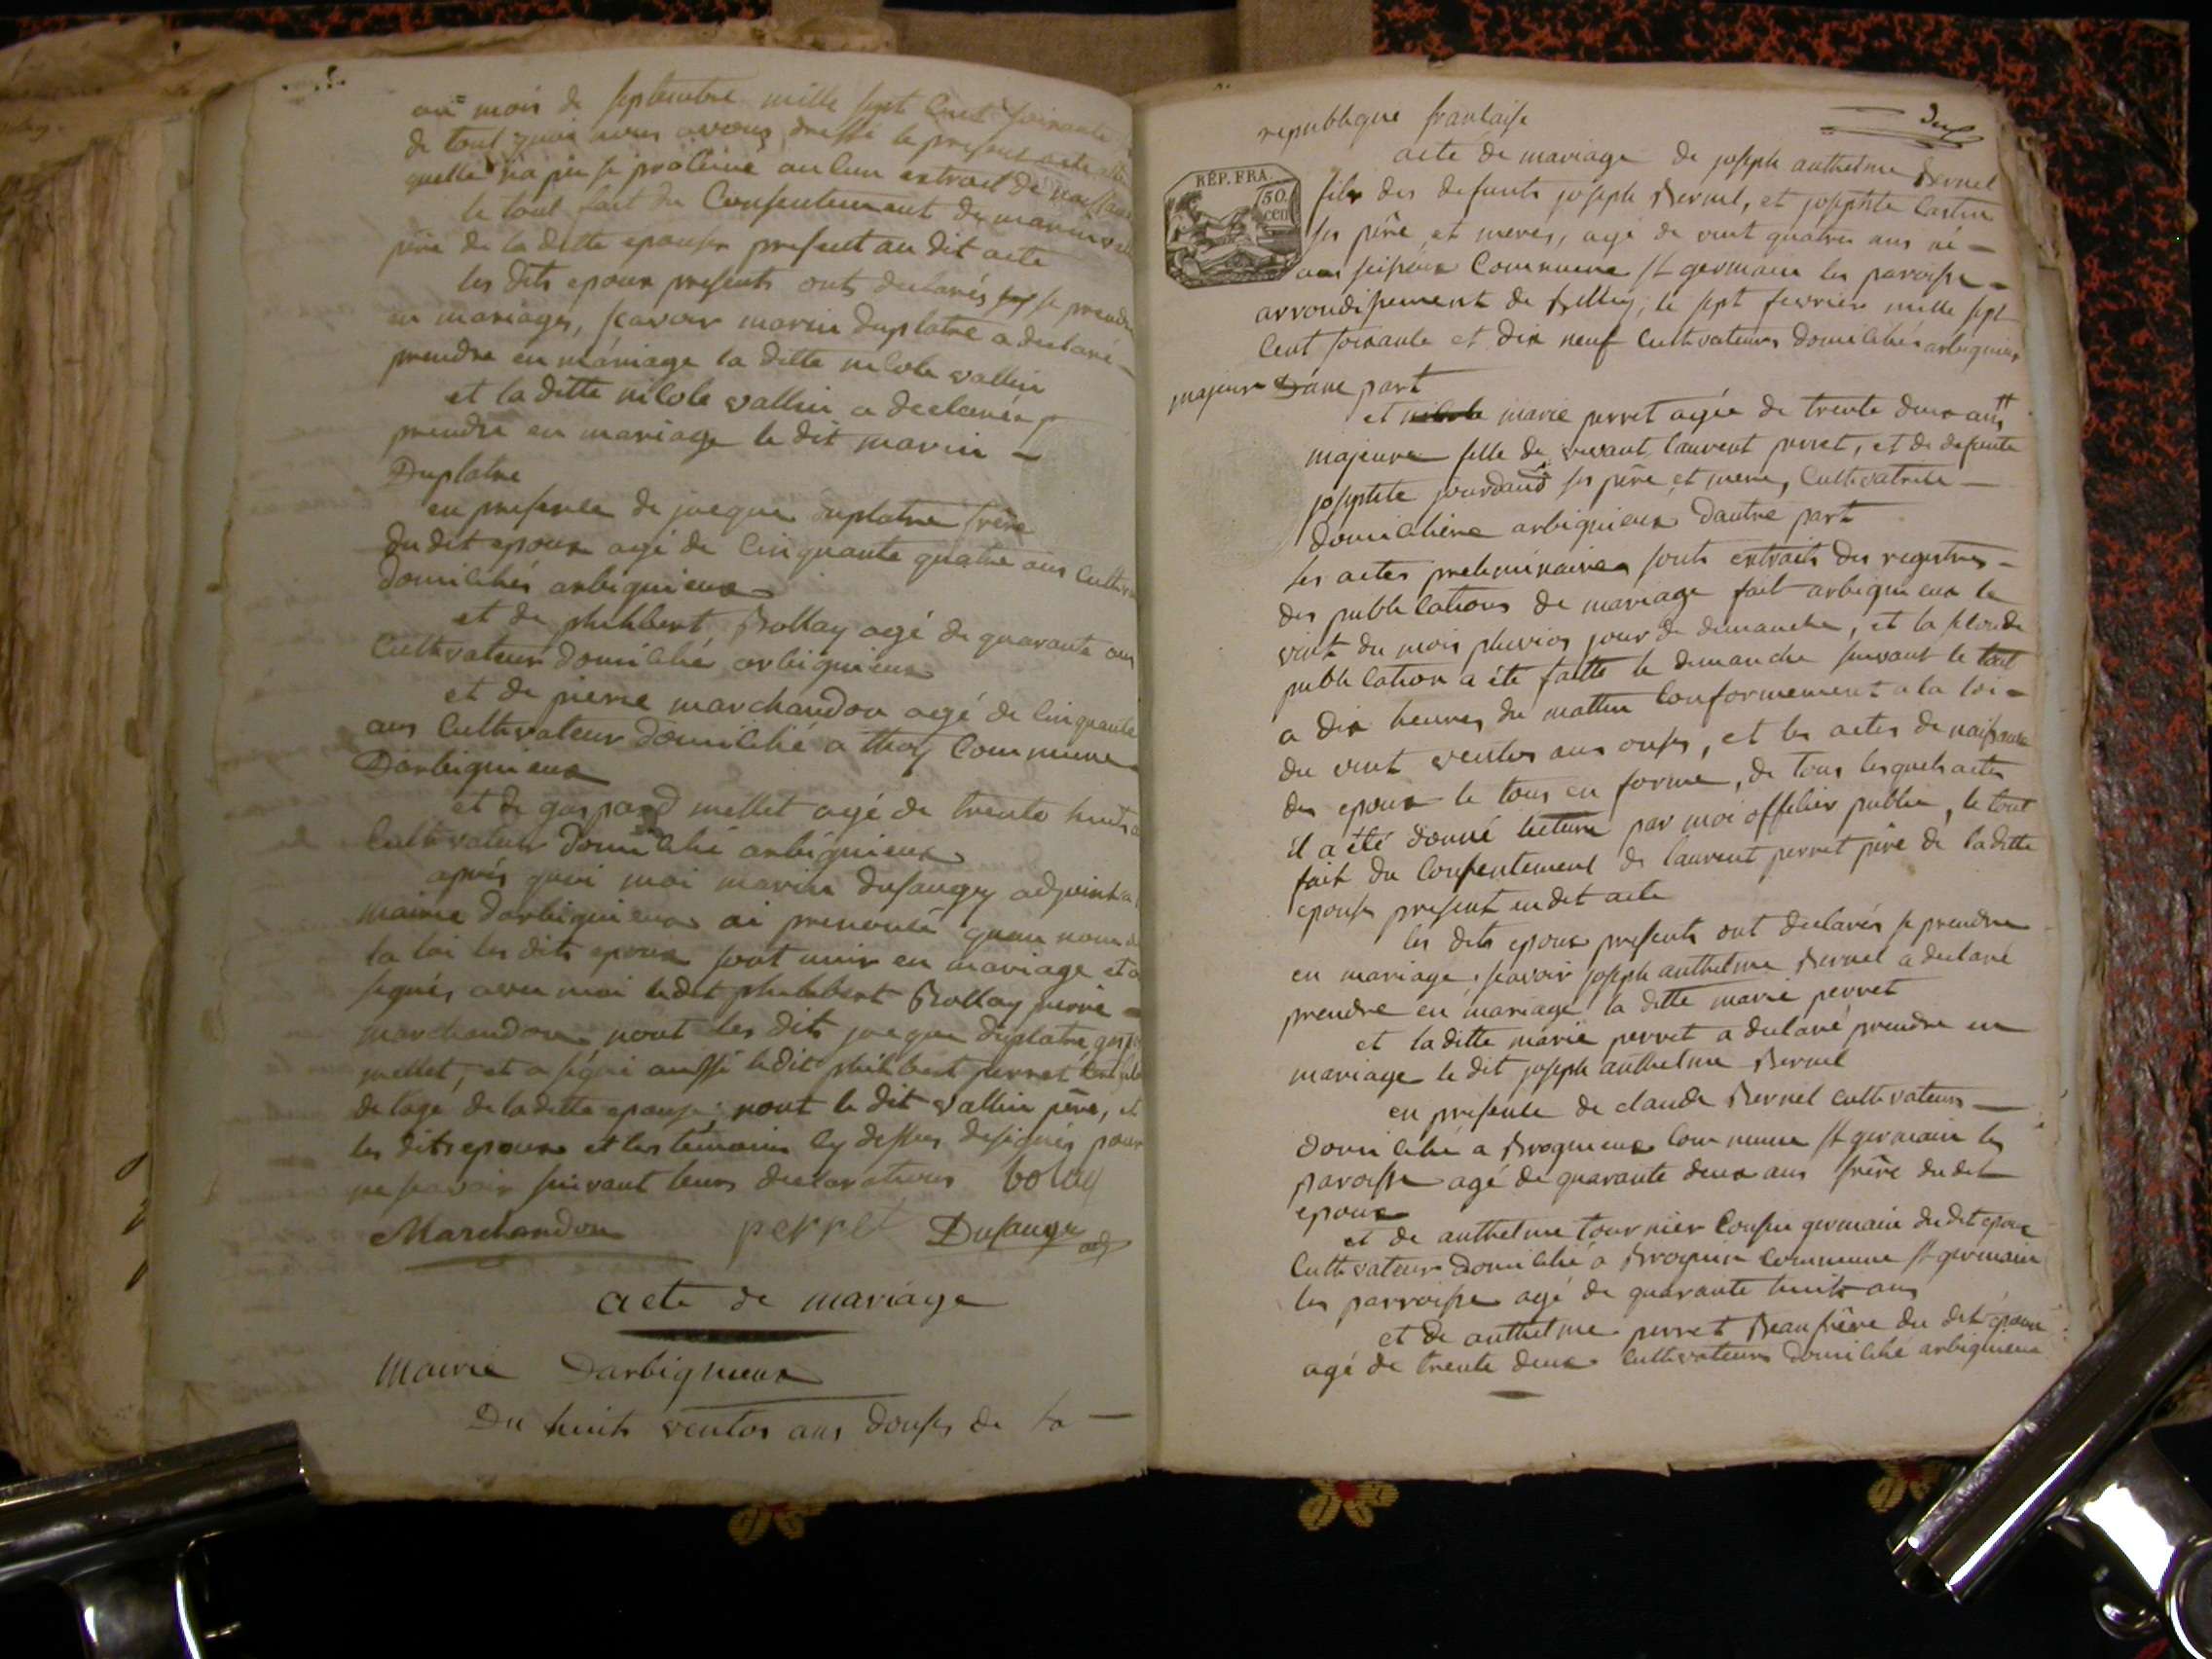 au mois de septembre mille sept cent soixante
de tout quoi nous avons dressé le present acte
quelle n'a pu se procuré aucun extrait de naissance
le tout fait du consentement de marin
père de la ditte epouse present au dit acte
les dits epoux presents onts declarés se prendre
en mariages, scavoir marin duplatre a declaré
prendre en mariage la ditte nicole vallin
et la ditte nicole vallin a declarée
prendre en mariage le dit marin -
Duplatre
en presence de jacque duplatre frère
du dit epoux agé de cinquante quatre ans
domiciliés arbignieux
et de philibert Bollay agé de quarante ans
cultivateur domicilié arbignieux
et de pierre marchandon agé de cinquante
ans cultivateur domicilié a thoy commune
Darbignieux
et de gaspard mellet agé de trente huits
cultivateur domicilié arbignieux
après quoi moi marin dusaugey adjoint a
mairie darbignieux ai prenoncé quau nom de
la loi les dits epoux sont unir en mariage et
signés avec moi ledit philibert Bollay pierre
marchandon nont les dits jacque duplatre
mellet, et a signé aussi ledit philibert perret
de lage de laditte epouse; nont le dit vallin père, et
les dits epoux et les temoins cy dessus designés pour
ne scavoir suivant leurs declarations bolay
Marchandon perret Dusauge adj
acte de mariage
Mairie Darbignieux
Du huits ventos ans douses de la -
republique francaise
acte de mariage de joseph anthelme Bernel
REP. FRA.
50
cen
fils des defunts joseph Bernel, et josephte
ses père et meres, agé de vint quatres ans né -
commune st germain les paroisse -
arrondissement de Belley, le sept fevrier mille sept
cent soixante et dix neuf cultivateurs domiciliés arbignieux
majeur D'une part
et marie perret agée de trente deux ans
majeure fille de vivant laurent perret, et de defunte
josephte jourdand ses père et mere, cultivatrice -
domicilière arbignieux dautre part
les actes preliminaires sonts extraits des registres -
des publications de mariage fait arbignieux le
vint du mois pluvios jour de dimanche, et la seconde
publication a été faitte le dimanche suivant le tout
a dix heures du mattin conformement a la loi -
du vint ventos ans onses, et les actes de naissance
des epoux le tous en forme, de tous lesquels actes
il a été donné lecture par moi officier public, le tout
fait du consentement de laurent perret père de laditte
epouse present audit acte
les dits epoux presents ont declarés se prendre
en mariage, scavoir joseph anthelme Bernel a declaré
prendre en mariage la ditte marie perret
et laditte marie perret a declaré prendre en
mariage le dit joseph anthelme Bernel
en presence de claude Bernel cultivateurs -
domicilié a Brognieux commune st germain les
paroisse agé de quarante deux ans frère dudit
epoux
et de anthelme tournier cousin germain dudit epoux
cultivateur domicilié a Brognieux commune st germain
les parroisse agé de quarante huit ans
et de anthelme perret Beau frère du dit epoux
agé de trente deux cultivateurs domicilié arbignieux